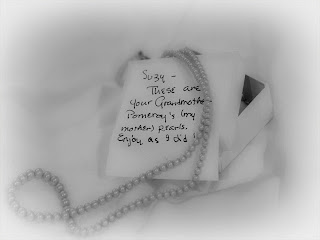 Suzy -
These are
your Grandmother
Pomeroy's (my
mother) Pearls.
Enjoy as I did!